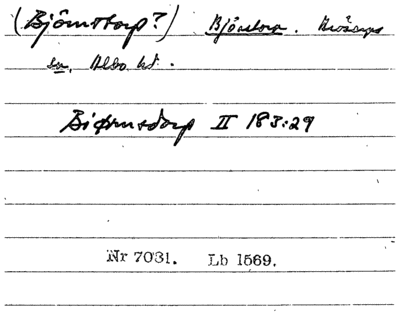 (Björnstorp?) Björstorp. Brösarps
sn, Albo hd.
Biørnsdorp II 183:29
Nr 7031. Lb 1569.